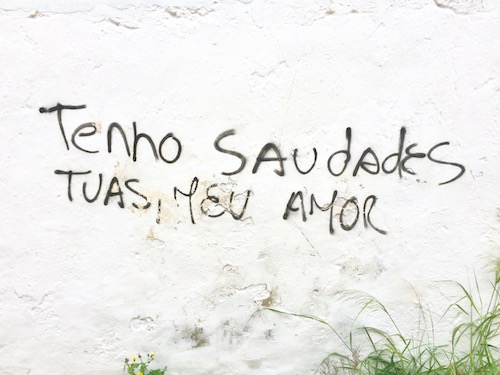 Tenho SAUdAdES
TUAS, MEU AMOR